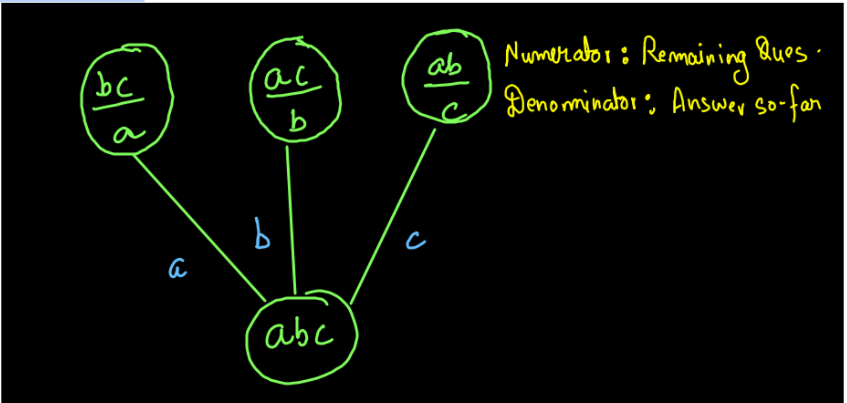 bc
a
ac
b
ab
c
Numerator: Remaining Ques.
Denominator: Answer so-far
a
b
c
abc